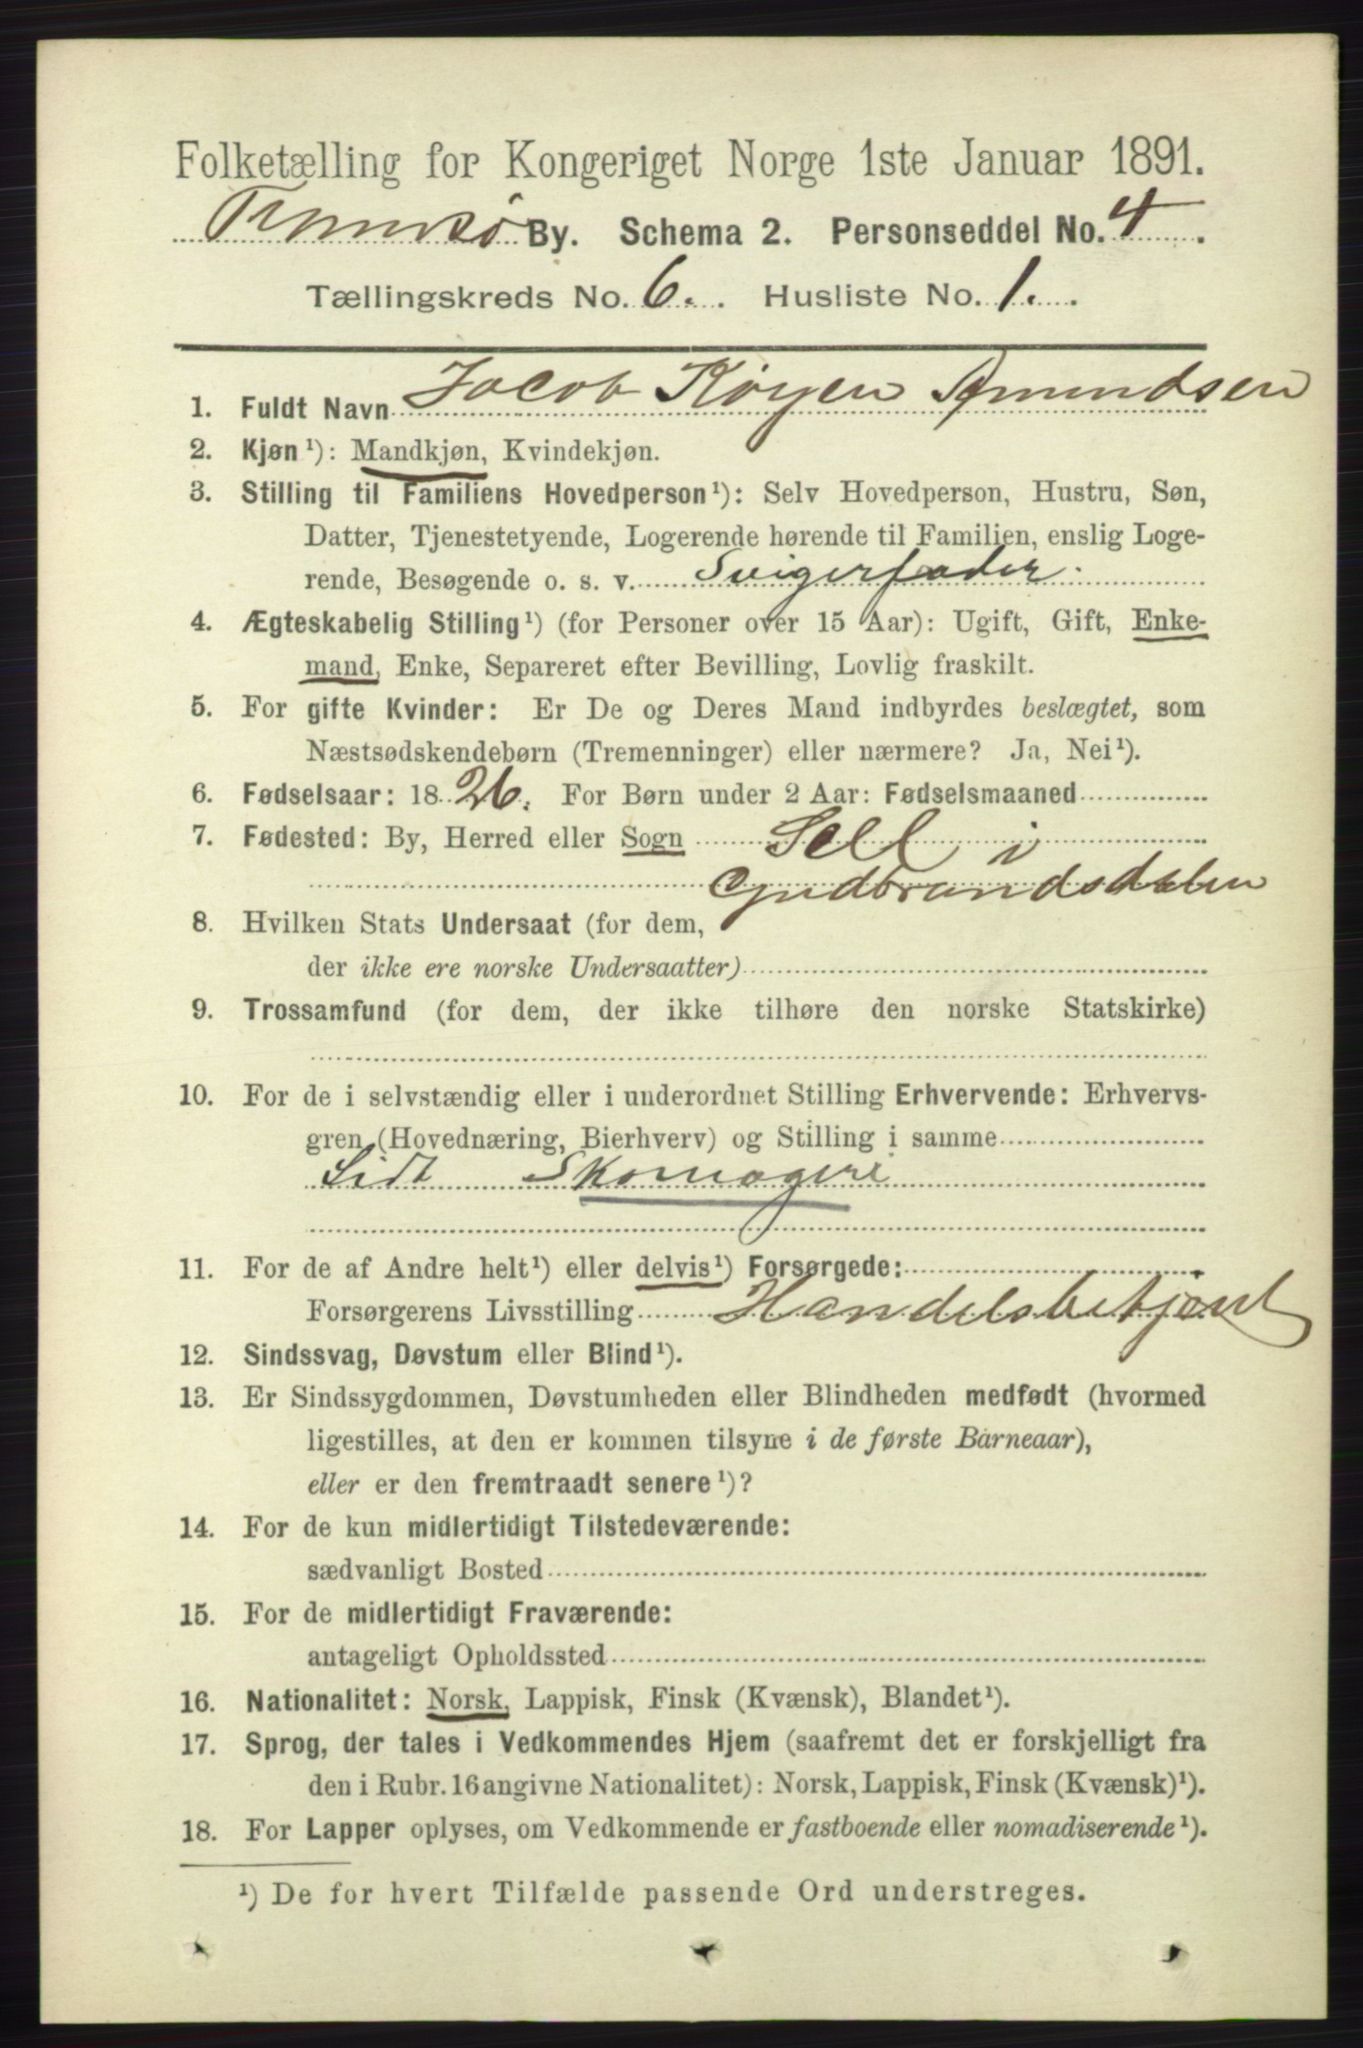 Folketælling for Kongeriget Norge 1ste Januar 1891.
Tromsø By. Schema 2. Personseddel No. 4.
Tællingskreds No. 6. Husliste No. 1.
1. Fuldt Navn Jacob Køyen Amundsen
2. Kjøn¹): Mandkjøn, Kvindekjøn.
3. Stilling til Familiens Hovedperson¹): Selv Hovedperson, Hustru, Søn,
Datter, Tjenestetyende, Logerende hørende til Familien, enslig Loge-
rende, Besøgende o. s. v. Svigerfader.
4. Ægteskabelig Stilling¹) (for Personer over 15 Aar): Ugift, Gift, Enke-
mand, Enke, Separeret efter Bevilling, Lovlig fraskilt.
5. For gifte Kvinder: Er De og Deres Mand indbyrdes beslægtet, som
Næstsødskendebørn (Tremenninger) eller nærmere? Ja, Nei¹).
6. Fødselsaar: 1826. For Børn under 2 Aar: Fødselsmaaned
7. Fødested: By, Herred eller Sogn Sell i
Gudbrandsdalen
8. Hvilken Stats Undersaat (for dem,
der ikke ere norske Undersaatter)
9. Trossamfund (for dem, der ikke tilhøre den norske Statskirke)
10. For de i selvstændig eller i underordnet Stilling Erhvervende: Erhvervs-
gren (Hovednæring, Bierhverv) og Stilling i samme
Lidt Skomageri
11. For de af Andre helt¹) eller delvis¹) Forsørgede:
Forsørgerens Livsstilling Handelsbetjent
12. Sindssvag, Døvstum eller Blind¹).
13. Er Sindssygdommen, Døvstumheden eller Blindheden medfødt (hvormed
ligestilles, at den er kommen tilsyne i de første Barneaar),
eller er den fremtraadt senere¹)?
14. For de kun midlertidigt Tilstedeværende:
sædvanligt Bosted
15. For de midlertidigt Fraværende:
antageligt Opholdssted
16. Nationalitet: Norsk, Lappisk, Finsk (Kvænsk), Blandet¹).
17. Sprog, der tales i Vedkommendes Hjem (saafremt det er forskjelligt fra
den i Rubr. 16 angivne Nationalitet): Norsk, Lappisk, Finsk (Kvænsk)¹).
18. For Lapper oplyses, om Vedkommende er fastboende eller nomadiserende¹).
¹) De for hvert Tilfælde passende Ord understreges.